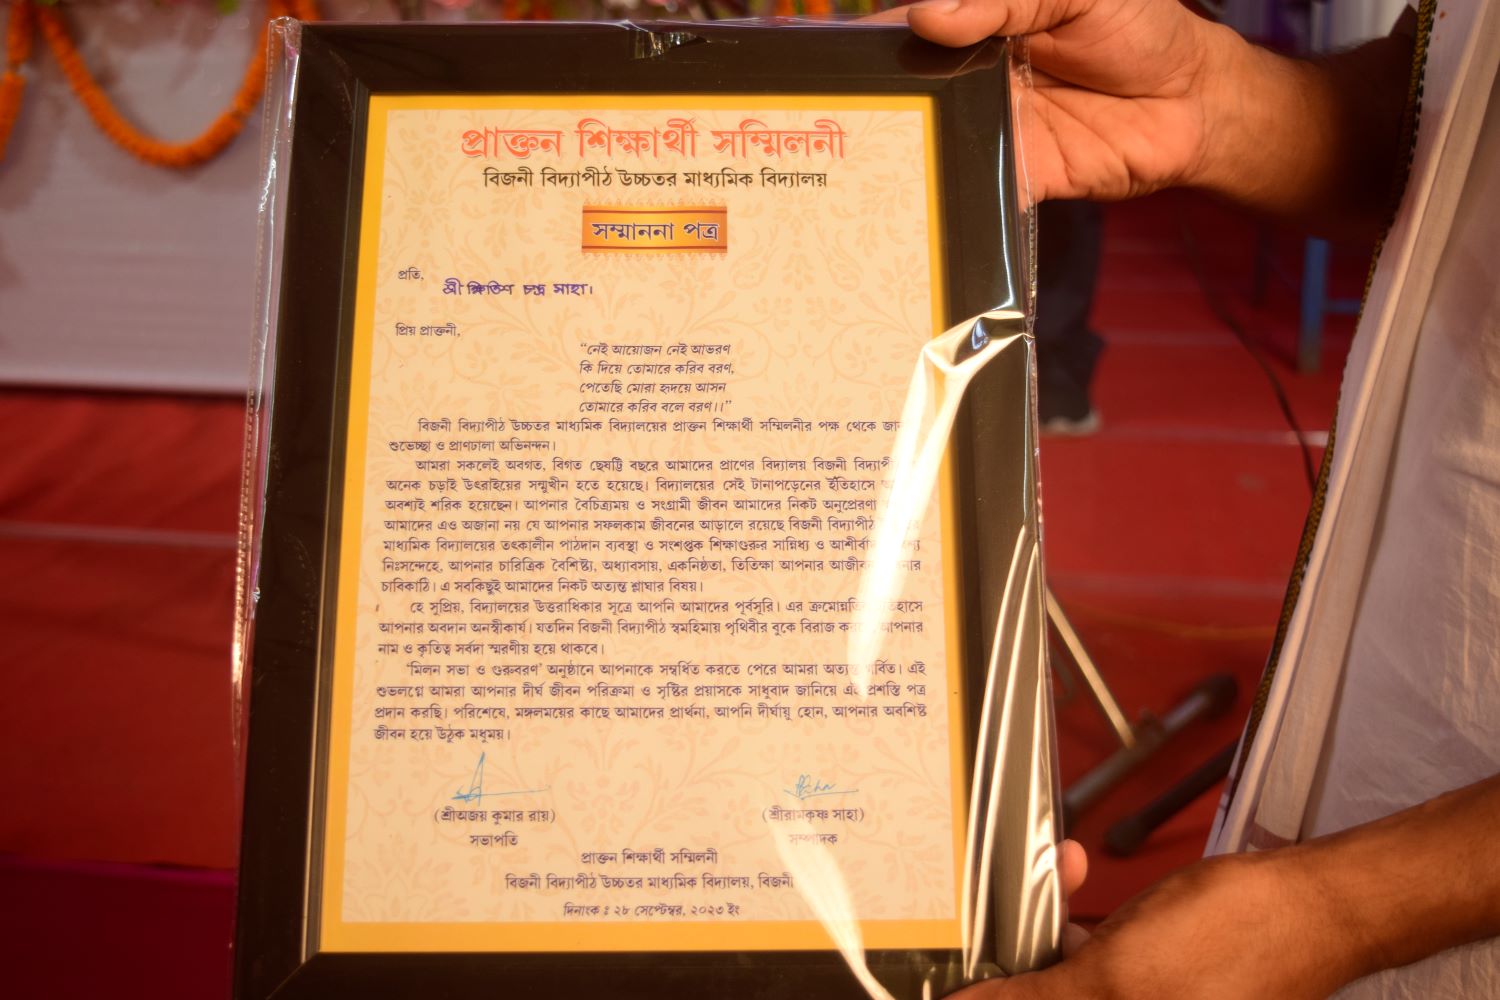 প্রাক্তন শিক্ষার্থী সম্মিলনী
বিজনী বিদ্যাপীঠ উচ্চতর মাধ্যমিক বিদ্যালয়
সম্মাননা পত্র
প্রতি,
শ্রী ক্ষিতিশ চন্দ্র সাহা।
প্রিয় প্রাক্তনী,
“নেই আয়োজন নেই আভরণ
কি দিয়ে তোমারে করিব বরণ,
পেতেছি মোরা হৃদয়ে আসন
তোমারে করিব বলে বরণ।।”
বিজনী বিদ্যাপীঠ উচ্চতর মাধ্যমিক বিদ্যালয়ের প্রাক্তন শিক্ষার্থী সম্মিলনীর পক্ষ থেকে
শুভেচ্ছা ও প্রাণঢালা অভিনন্দন।
আমরা সকলেই অবগত, বিগত ছেষট্টি বছরে আমাদের প্রাণের বিদ্যালয় বিজনী
অনেক চড়াই উৎরাইয়ের সন্মুখীন হতে হয়েছে। বিদ্যালয়ের সেই টানাপড়েনের ইতিহাসে
অবশ্যই শরিক হয়েছেন। আপনার বৈচিত্র্যময় ও সংগ্রামী জীবন আমাদের নিকট অনুপ্রেরণা
আমাদের এও অজানা নয় যে আপনার সফলকাম জীবনের আড়ালে রয়েছে বিজনী বিদ্যাপীঠ
মাধ্যমিক বিদ্যালয়ের তৎকালীন পাঠদান ব্যবস্থা ও সংশপ্তক শিক্ষাগুরুর সান্নিধ্য ও
নিঃসন্দেহে, আপনার চারিত্রিক বৈশিষ্ট্য, অধ্যাবসায়, একনিষ্ঠতা, তিতিক্ষা আপনার
চাবিকাঠি। এ সবকিছুই আমাদের নিকট অত্যন্ত শ্লাঘার বিষয়।
হে সুপ্রিয়, বিদ্যালয়ের উত্তরাধিকার সূত্রে আপনি আমাদের পূর্বসূরি। এর
আপনার অবদান অনস্বীকার্য। যতদিন বিজনী বিদ্যাপীঠ স্বমহিমায় পৃথিবীর বুকে বিরাজ আপনার
নাম ও কৃতিত্ব সর্বদা স্মরণীয় হয়ে থাকবে।
‘মিলন সভা ও গুরুবরণ’ অনুষ্ঠানে আপনাকে সম্বর্ধিত করতে পেরে আমরা অত্যন্ত গর্বিত। এই
শুভলগ্নে আমরা আপনার দীর্ঘ জীবন পরিক্রমা ও সৃষ্টির প্রয়াসকে সাধুবাদ জানিয়ে এই প্রশস্তি পত্র
প্রদান করছি। পরিশেষে, মঙ্গলময়ের কাছে আমাদের প্রার্থনা, আপনি দীর্ঘায়ু হোন, আপনার অবশিষ্ট
জীবন হয়ে উঠুক মধুময়।
(শ্রীঅজয় কুমার রায়) (শ্রীরামকৃষ্ণ সাহা)
সভাপতি সম্পাদক
প্রাক্তন শিক্ষার্থী সম্মিলনী
বিজনী বিদ্যাপীঠ উচ্চতর মাধ্যমিক বিদ্যালয়, বিজনী
দিনাংক ঃ ২৮ সেপ্টেম্বর, ২০২৩ ইং